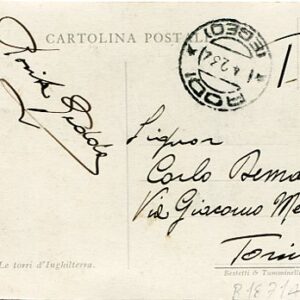 CARTOLINA POSTAL
RODI
(EGEO)
4.2.34
Signor
Carlo Bema
Via Giacomo Me
Torin
Le torri d'Inghilterra.
Bestetti & Tumminelli